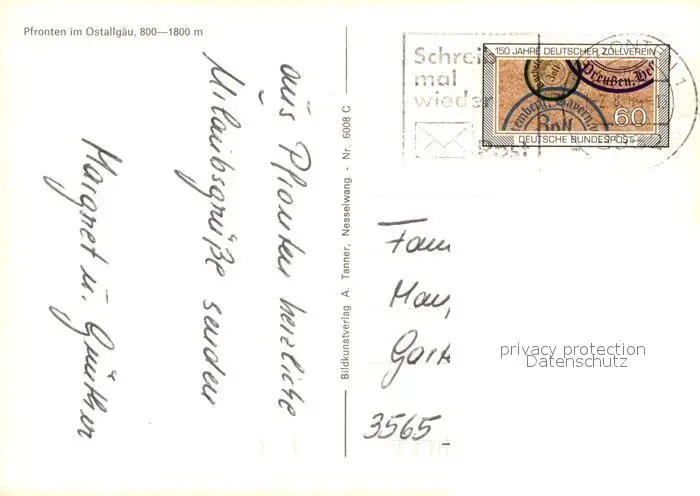 Pfronten im Ostallgäu, 800—1800 m
aus Pfronten herzliche
Urlaubsgrüße senden
Margret u. Günther
Bildkunstverlag A. Tanner, Nesselwang - Nr. 6008 C
Schrei
mal
wieder
Post
150 JAHRE DEUTSCHER ZOLLVEREIN
Zoll
Preußen. He
temberg. Bayern.
60
DEUTSCHE BUNDESPOST
PFRONTEN 1
Fam
May
Gart
3565
privacy protection
Datenschutz